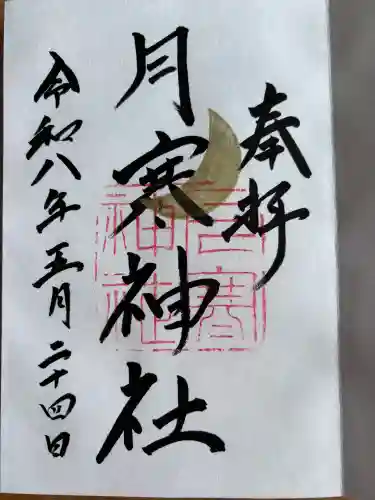 奉拝
月寒神社
令和八年五月二十四日
月寒神社